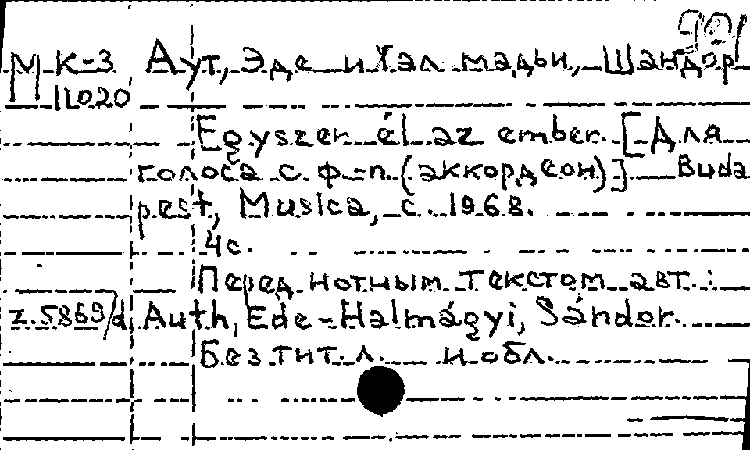 М К-3 Аут, Эде и Халмадьи, Шандор
11020
Egyszer él az ember. [Для
голоса с ф-п (аккордеон)] Buda
pest, Musica, c. 1968.
4 с.
Перед нотным текстом авт.:
Z.5869/d Auth, Ede-Halmágyi, Sándor.
Без тит. л. и обл.